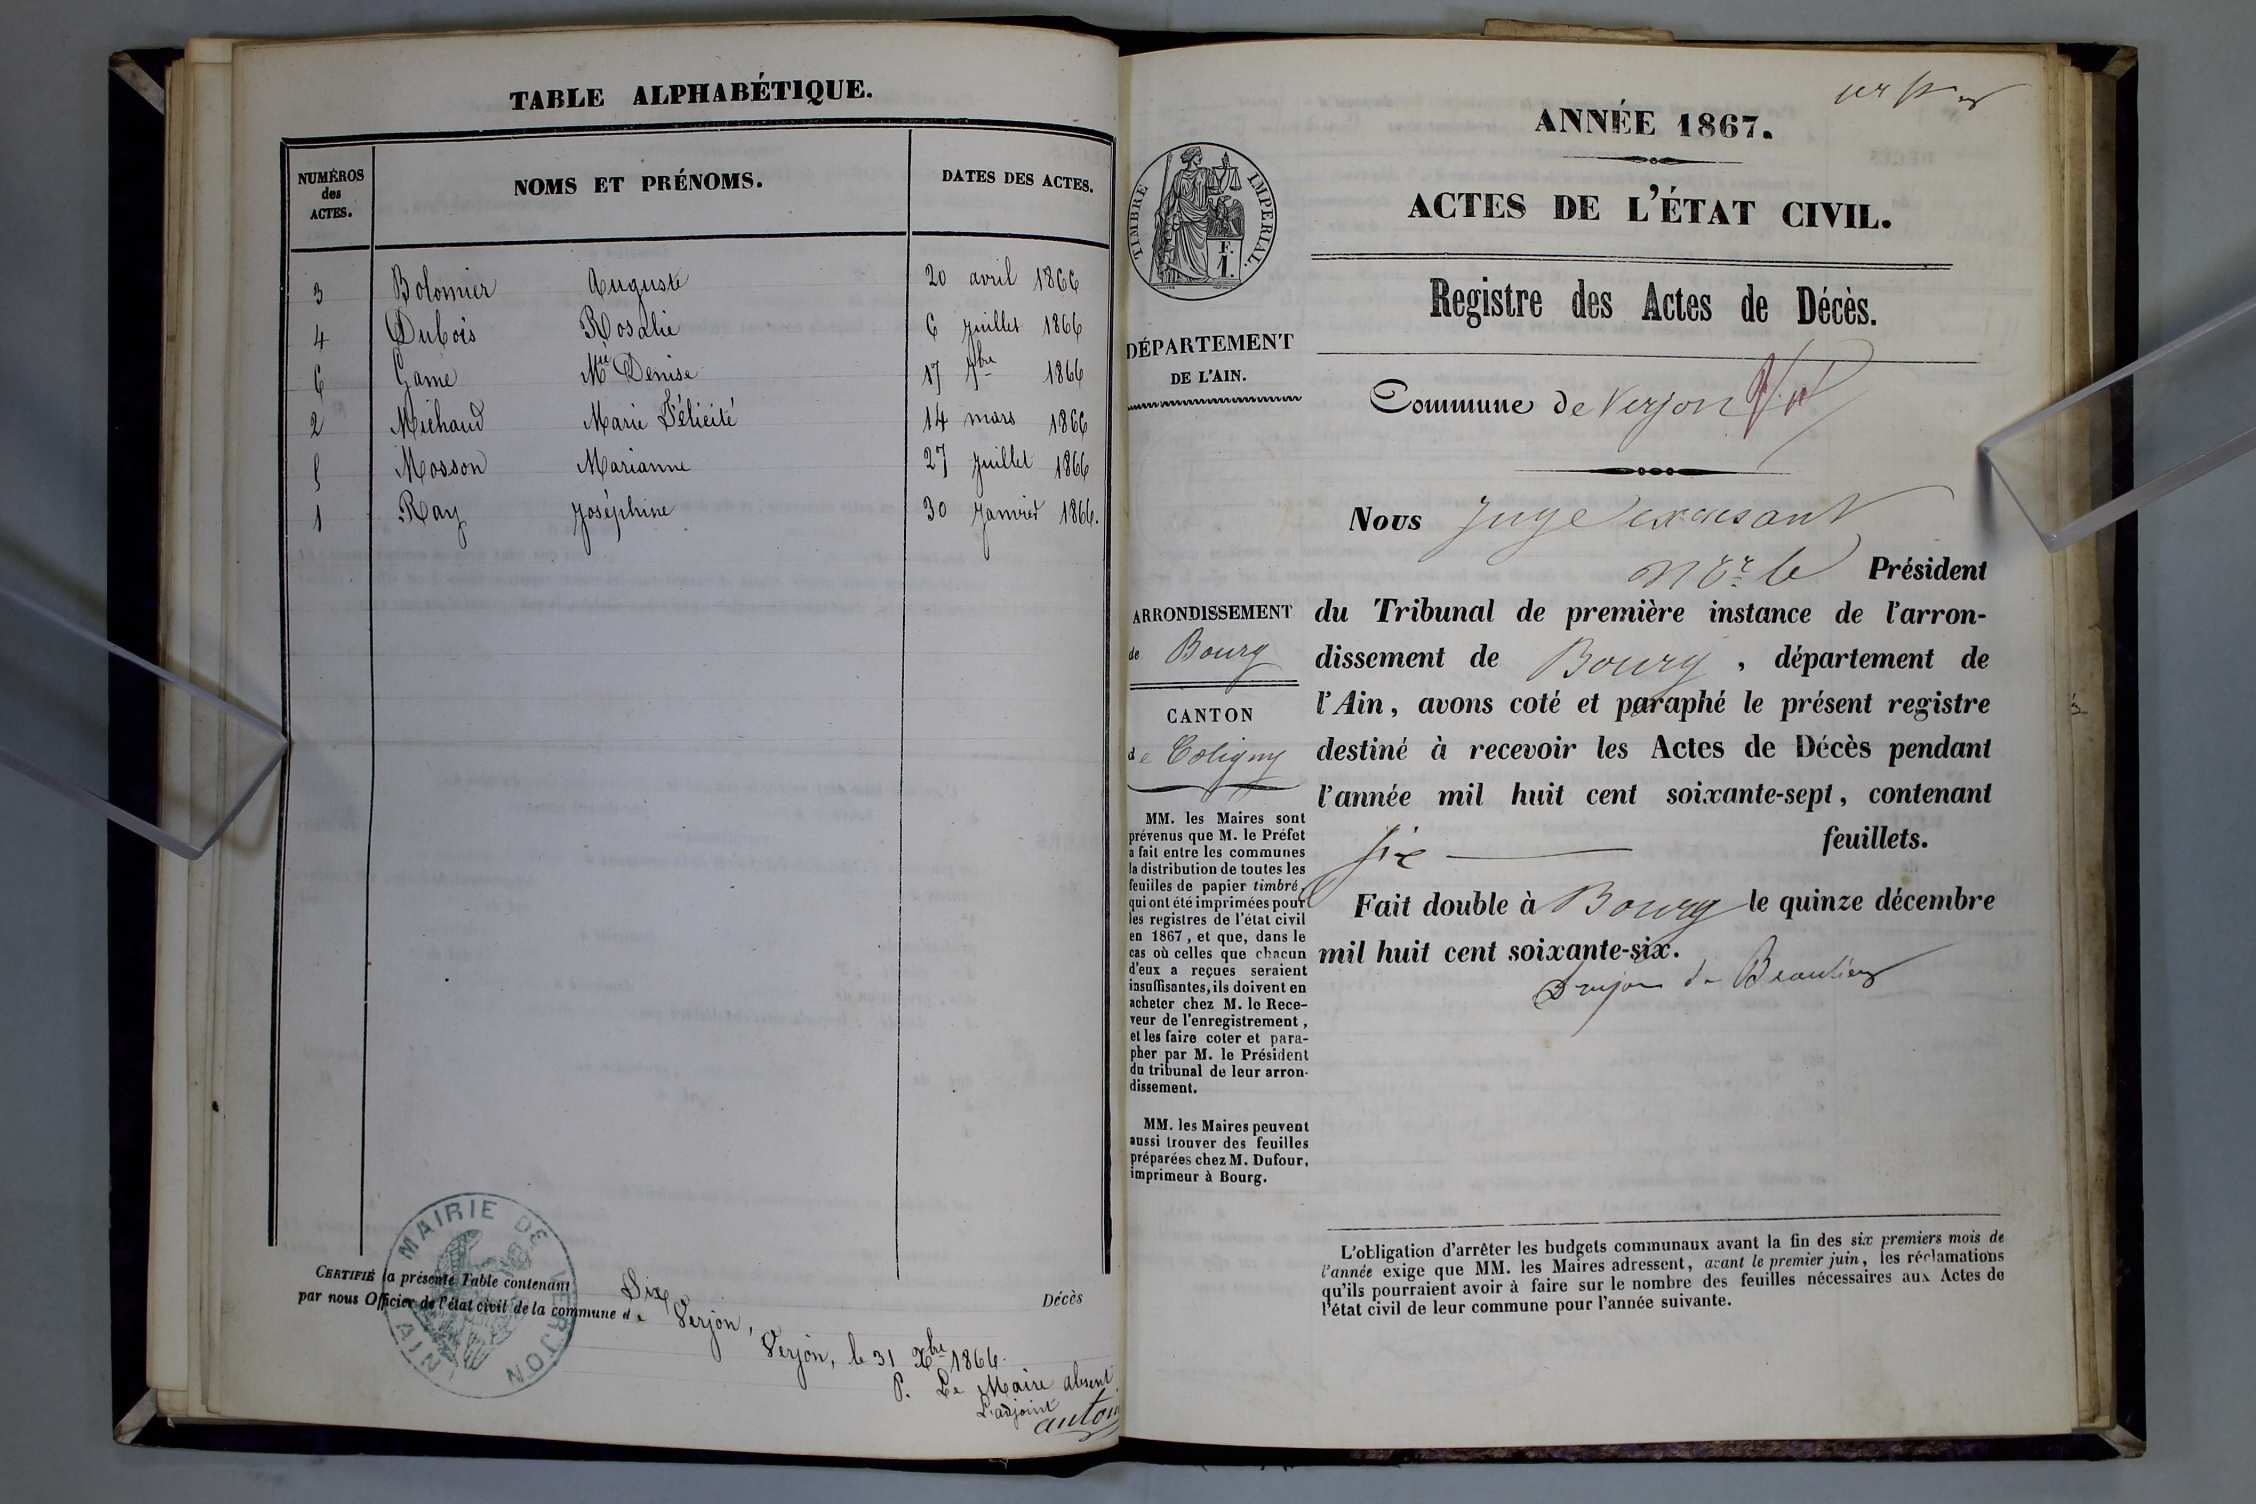 TABLE ALPHABÉTIQUE.
NUMÉROS des ACTES.
NOMS ET PRÉNOMS.
DATES DES ACTES.
3 Bolomier Auguste 20 avril 1866
4 Dubois Rosalie 6 Juillet 1866
6 Game Mie Denise 17 7bre 1866
2 Michaud Marie Félicité 14 mars 1866
5 Mosson Marianne 27 Juillet 1866
1 Ray Joséphine 30 Janvier 1866.
MAIRIE DE VERJON
AIN
CERTIFIÉ la présente Table contenant Six Décès
par nous Officier de l'état civil de la commune de Verjon,
Verjon, le 31 Xbre 1866.
P. Le Maire absent
L'adjoint
ANNÉE 1867.
ACTES DE L'ÉTAT CIVIL.
TIMBRE IMPERIAL.
F.
1.
Registre des Actes de Décès.
DÉPARTEMENT
DE L'AIN.
Commune de Verjon
ARRONDISSEMENT
de Bourg
CANTON
de Coligny
MM. les Maires sont
prévenus que M. le Préfet
a fait entre les communes
la distribution de toutes les
feuilles de papier timbré,
qui ont été imprimées pour
les registres de l'état civil
en 1867, et que, dans le
cas où celles que chacun
d'eux a reçues seraient
insuffisantes, ils doivent en
acheter chez M. le Rece-
veur de l'enregistrement,
et les faire coter et para-
pher par M. le Président
du tribunal de leur arron-
dissement.
MM. les Maires peuvent
aussi trouver des feuilles
préparées chez M. Dufour,
imprimeur à Bourg.
Nous Juge
le Président
du Tribunal de première instance de l'arron-
dissement de Bourg, département de
l'Ain, avons coté et paraphé le présent registre
destiné à recevoir les Actes de Décès pendant
l'année mil huit cent soixante-sept, contenant
six feuillets.
Fait double à Bourg le quinze décembre
mil huit cent soixante-six.
de Beaulieu
L'obligation d'arrêter les budgets communaux avant la fin des six premiers mois de
l'année exige que MM. les Maires adressent, avant le premier juin, les réclamations
qu'ils pourraient avoir à faire sur le nombre des feuilles nécessaires aux Actes de
l'état civil de leur commune pour l'année suivante.